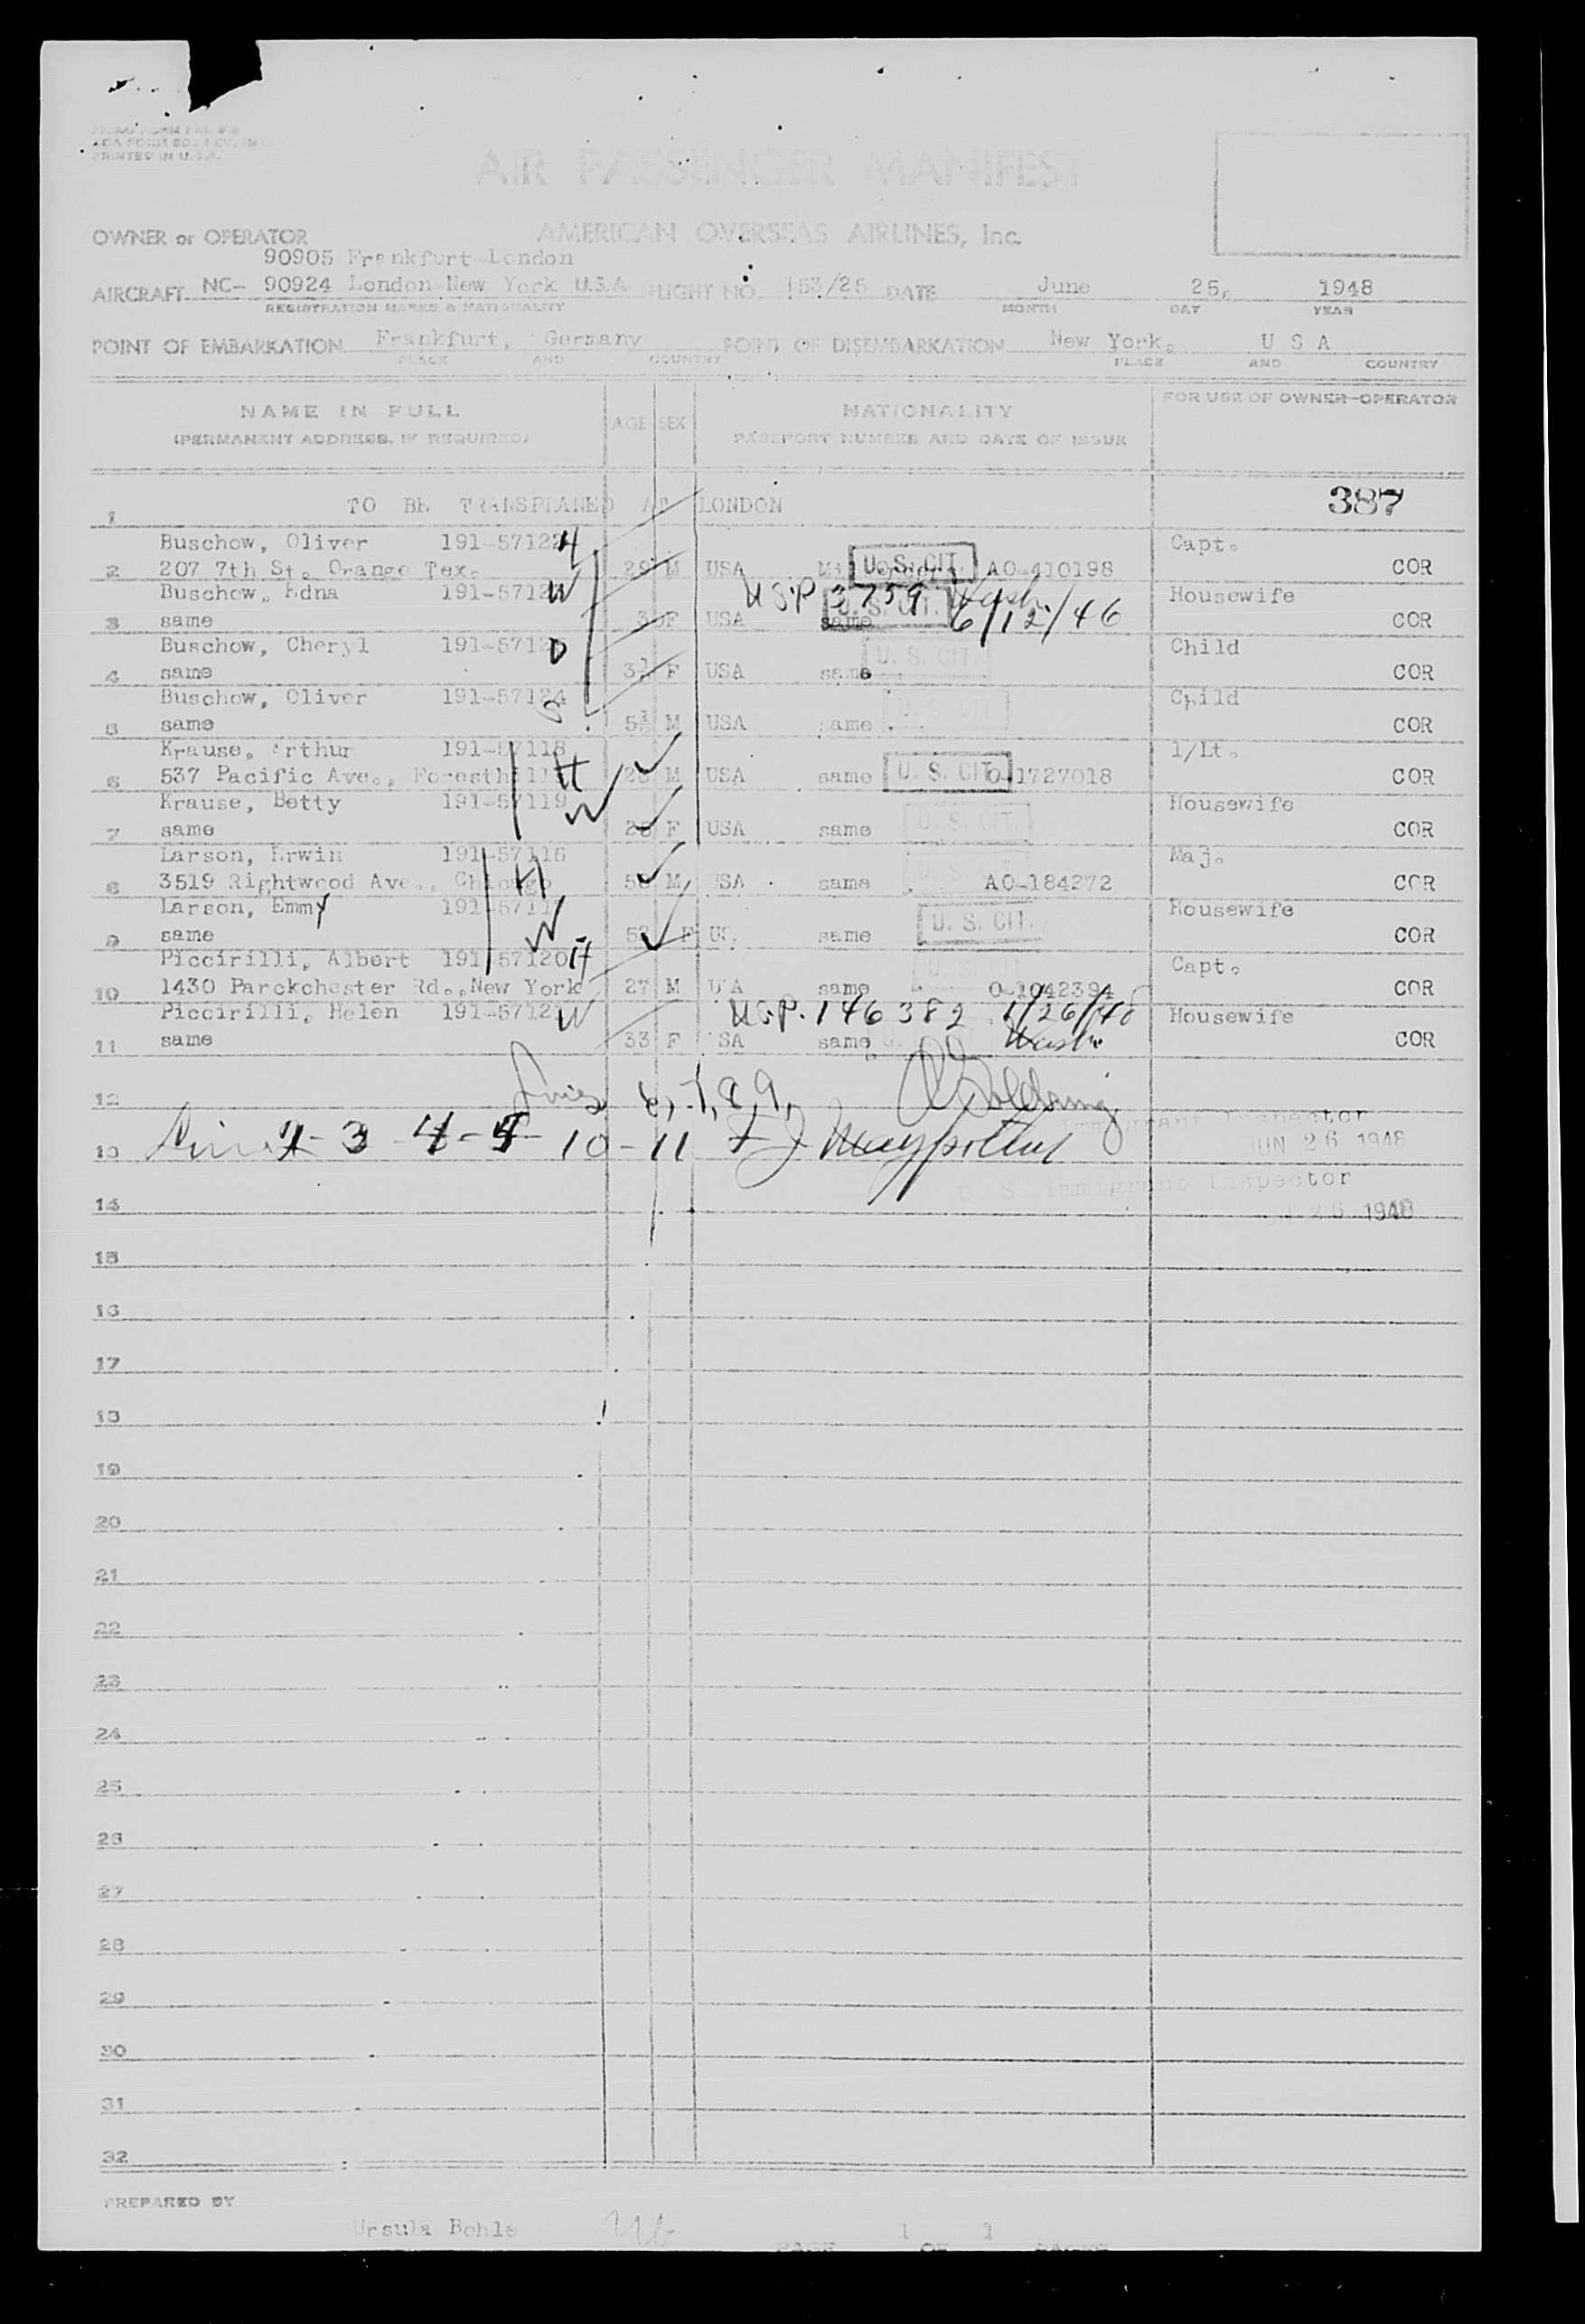 PRINTED IN U.S.A.
AIR PASSENGER MANIFEST
OWNER or OPERATOR AMERICAN OVERSEAS AIRLINES, Inc.
90905 Frankfurt-London
AIRCRAFT NC- 90924 London-New York U.S.A FLIGHT NO. 153/25 DATE June 25, 1948
REGISTRATION MARKS & NATIONALITY MONTH DAY YEAR
POINT OF EMBARKATION Frankfurt, Germany POINT OF DISEMBARKATION New York, U S A
PLACE AND COUNTRY PLACE AND COUNTRY
NAME IN FULL AGE SEX NATIONALITY FOR USE OF OWNER-OPERATOR
(PERMANENT ADDRESS, IF REQUIRED) PASSPORT NUMBER AND DATE OF ISSUE
1 TO BE TRANSPLANED AT LONDON 387
Buschow, Oliver 191-57122 H Capt.
2 207 7th St. Orange Tex. 29 M USA U. S. CIT. AO-410198 COR
Buschow, Edna 191-5712 W U.S.P. 3759 Wash. Housewife
3 same F USA same U. S. CIT. 6/12/46 COR
Buschow, Cheryl 191-5712 D U. S. CIT. Child
4 same 3½ F USA same COR
Buschow, Oliver 191-57124 S U. S. CIT Child
5 same 5½ M USA same COR
Krause, Arthur 191-57118 H 1/Lt.
6 537 Pacific Ave., Foresthill M USA same U. S. CIT. O-1727018 COR
Krause, Betty 191-57119 W U. S. CIT. Housewife
7 same F USA same COR
Larson, Erwin 191-57116 H Maj.
8 3519 Rightwood Ave., Chicago M USA same AO-184272 COR
Larson, Emmy 191-5711 W U. S. CIT. Housewife
9 same F US same COR
Piccirilli, Albert 191-57120 H U. S. CIT Capt.
10 1430 Parckchester Rd., New York 27 M USA same O-1042394 COR
Piccirilli, Helen 191-57121 W U.S.P. 146382 1/26/48 Housewife
11 same 33 F USA same Wash. COR
12 Lines 6, 7, 8, 9,
Immigrant Inspector
13 Lines 2-3-4-5-10-11 JUN 26 1948
U. S. Immigrant Inspector
14 26 1948
15
16
17
18
19
20
21
22
23
24
25
26
27
28
29
30
31
32
PREPARED BY
Ursula Bohle PAGE 1 OF 1 PAGES